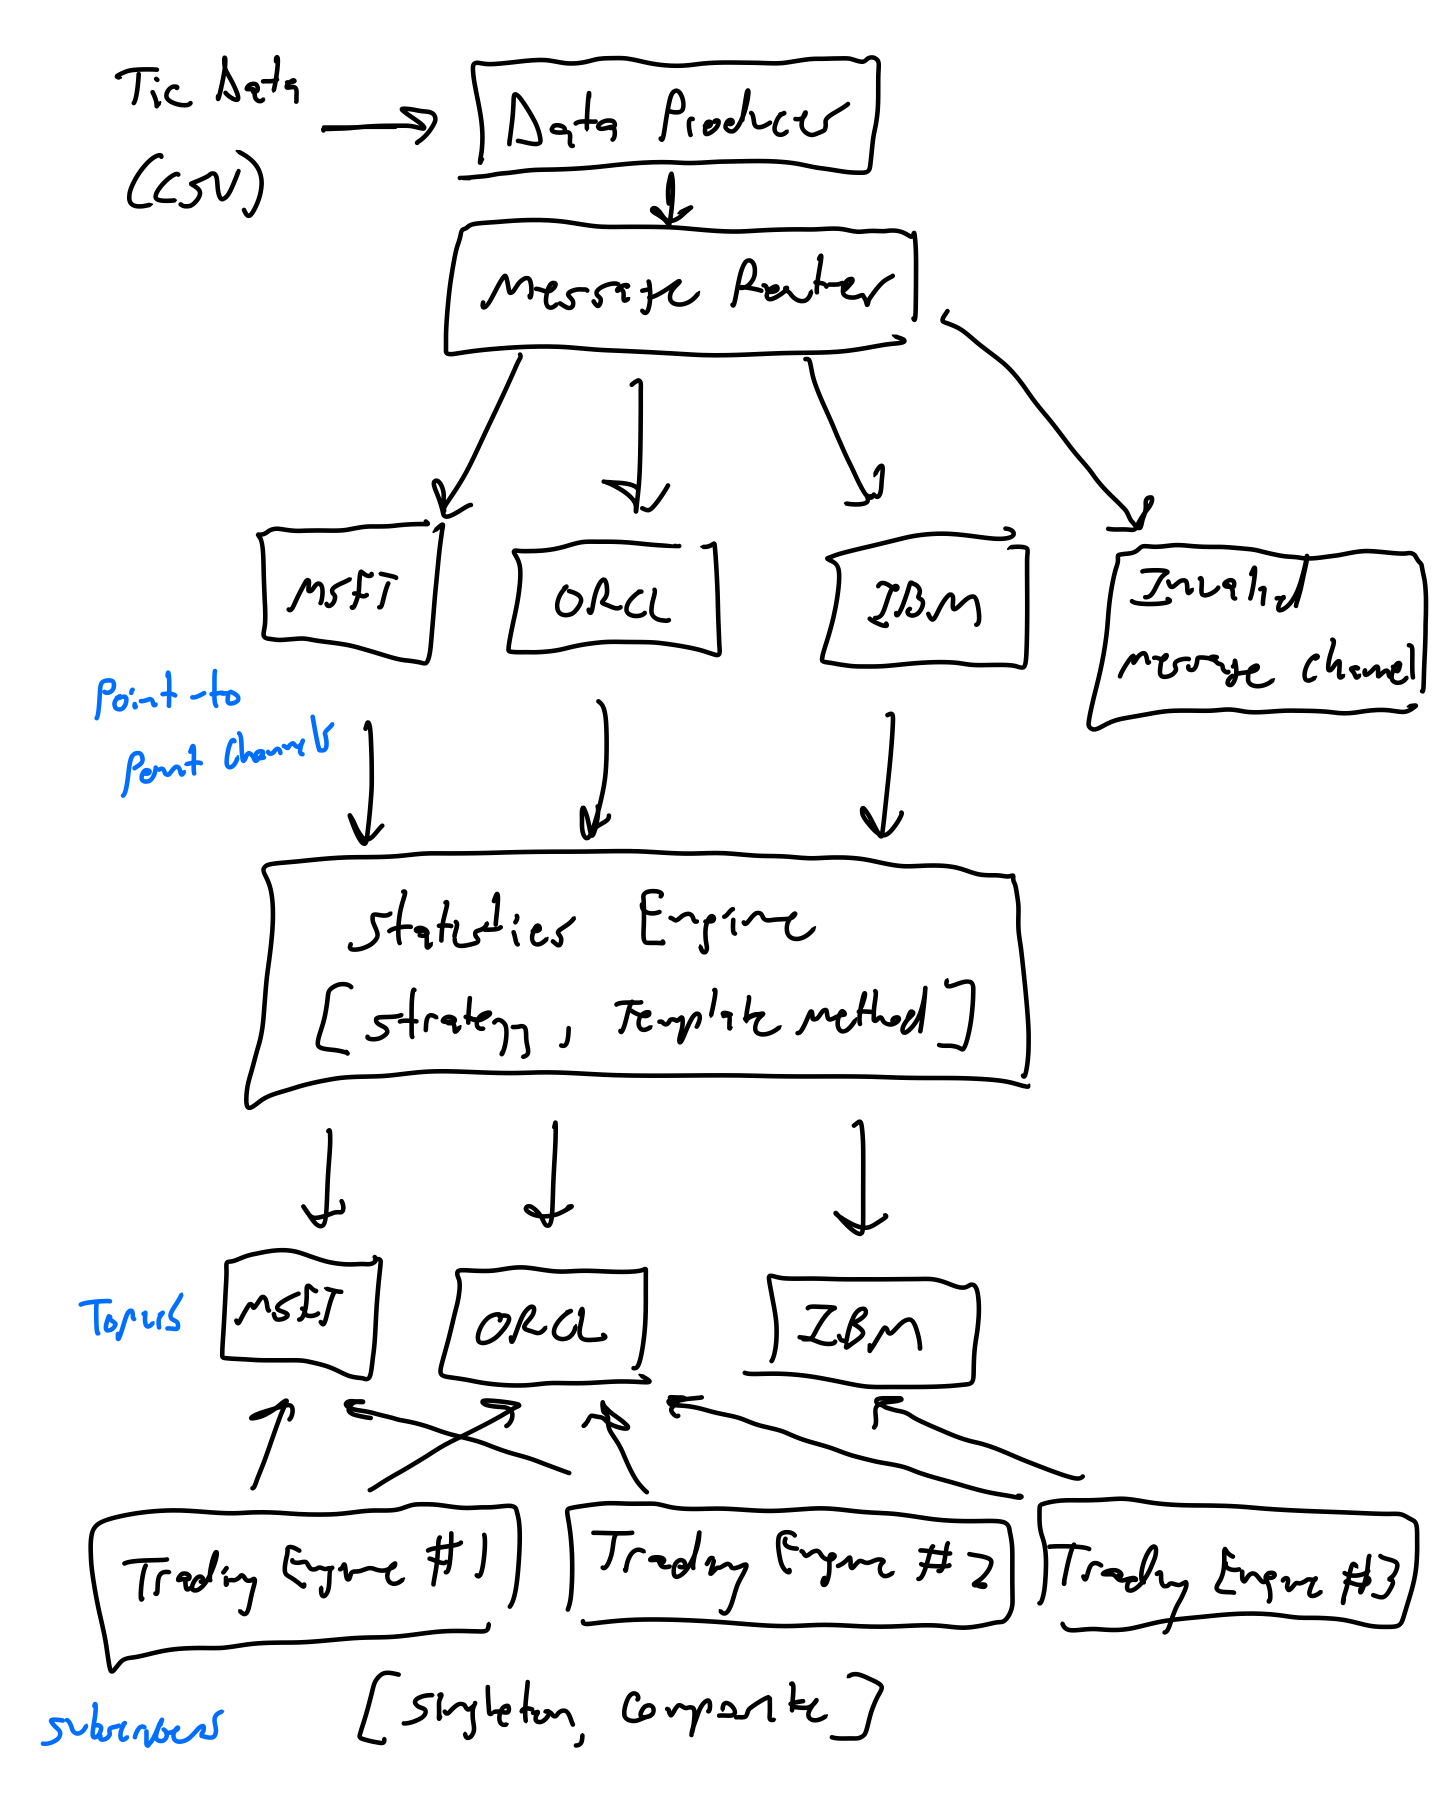 Tic Data
(CSV)
Data Producer
Message Router
MSFT
ORCL
IBM
Invalid
message channel
Point-to
point channels
Statistics Engine
[strategy, Template method]
Topics
MSFT
ORCL
IBM
Trading Engine #1
Trading Engine #2
Trading Engine #3
subscribers
[singleton, composite]